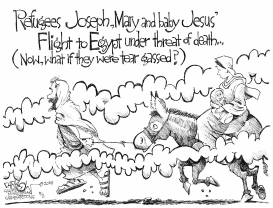 "Refugees Joseph, Mary and baby Jesus'
Flight to Egypt under threat of death...
(Now, what if they were tear gassed?)